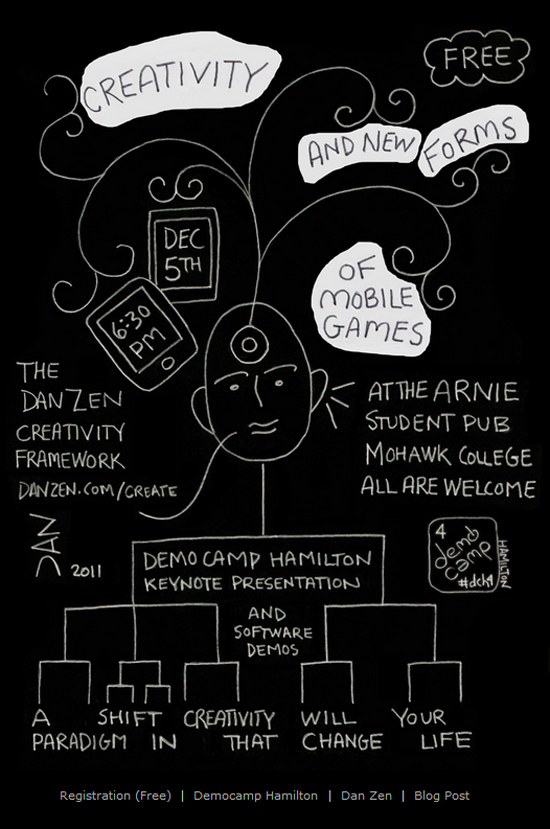 CREATIVITY
FREE
AND NEW
FORMS
OF
MOBILE
GAMES
DEC
5TH
6:30
PM
THE
DANZEN
CREATIVITY
FRAMEWORK
DANZEN.COM/CREATE
AT THE ARNIE
STUDENT PUB
MOHAWK COLLEGE
ALL ARE WELCOME
DAN
2011
4
demo
camp
HAMILTON
#dch4
DEMO CAMP HAMILTON
KEYNOTE PRESENTATION
AND
SOFTWARE
DEMOS
A SHIFT CREATIVITY WILL YOUR
PARADIGM IN THAT CHANGE LIFE
Registration (Free) | Democamp Hamilton | Dan Zen | Blog Post